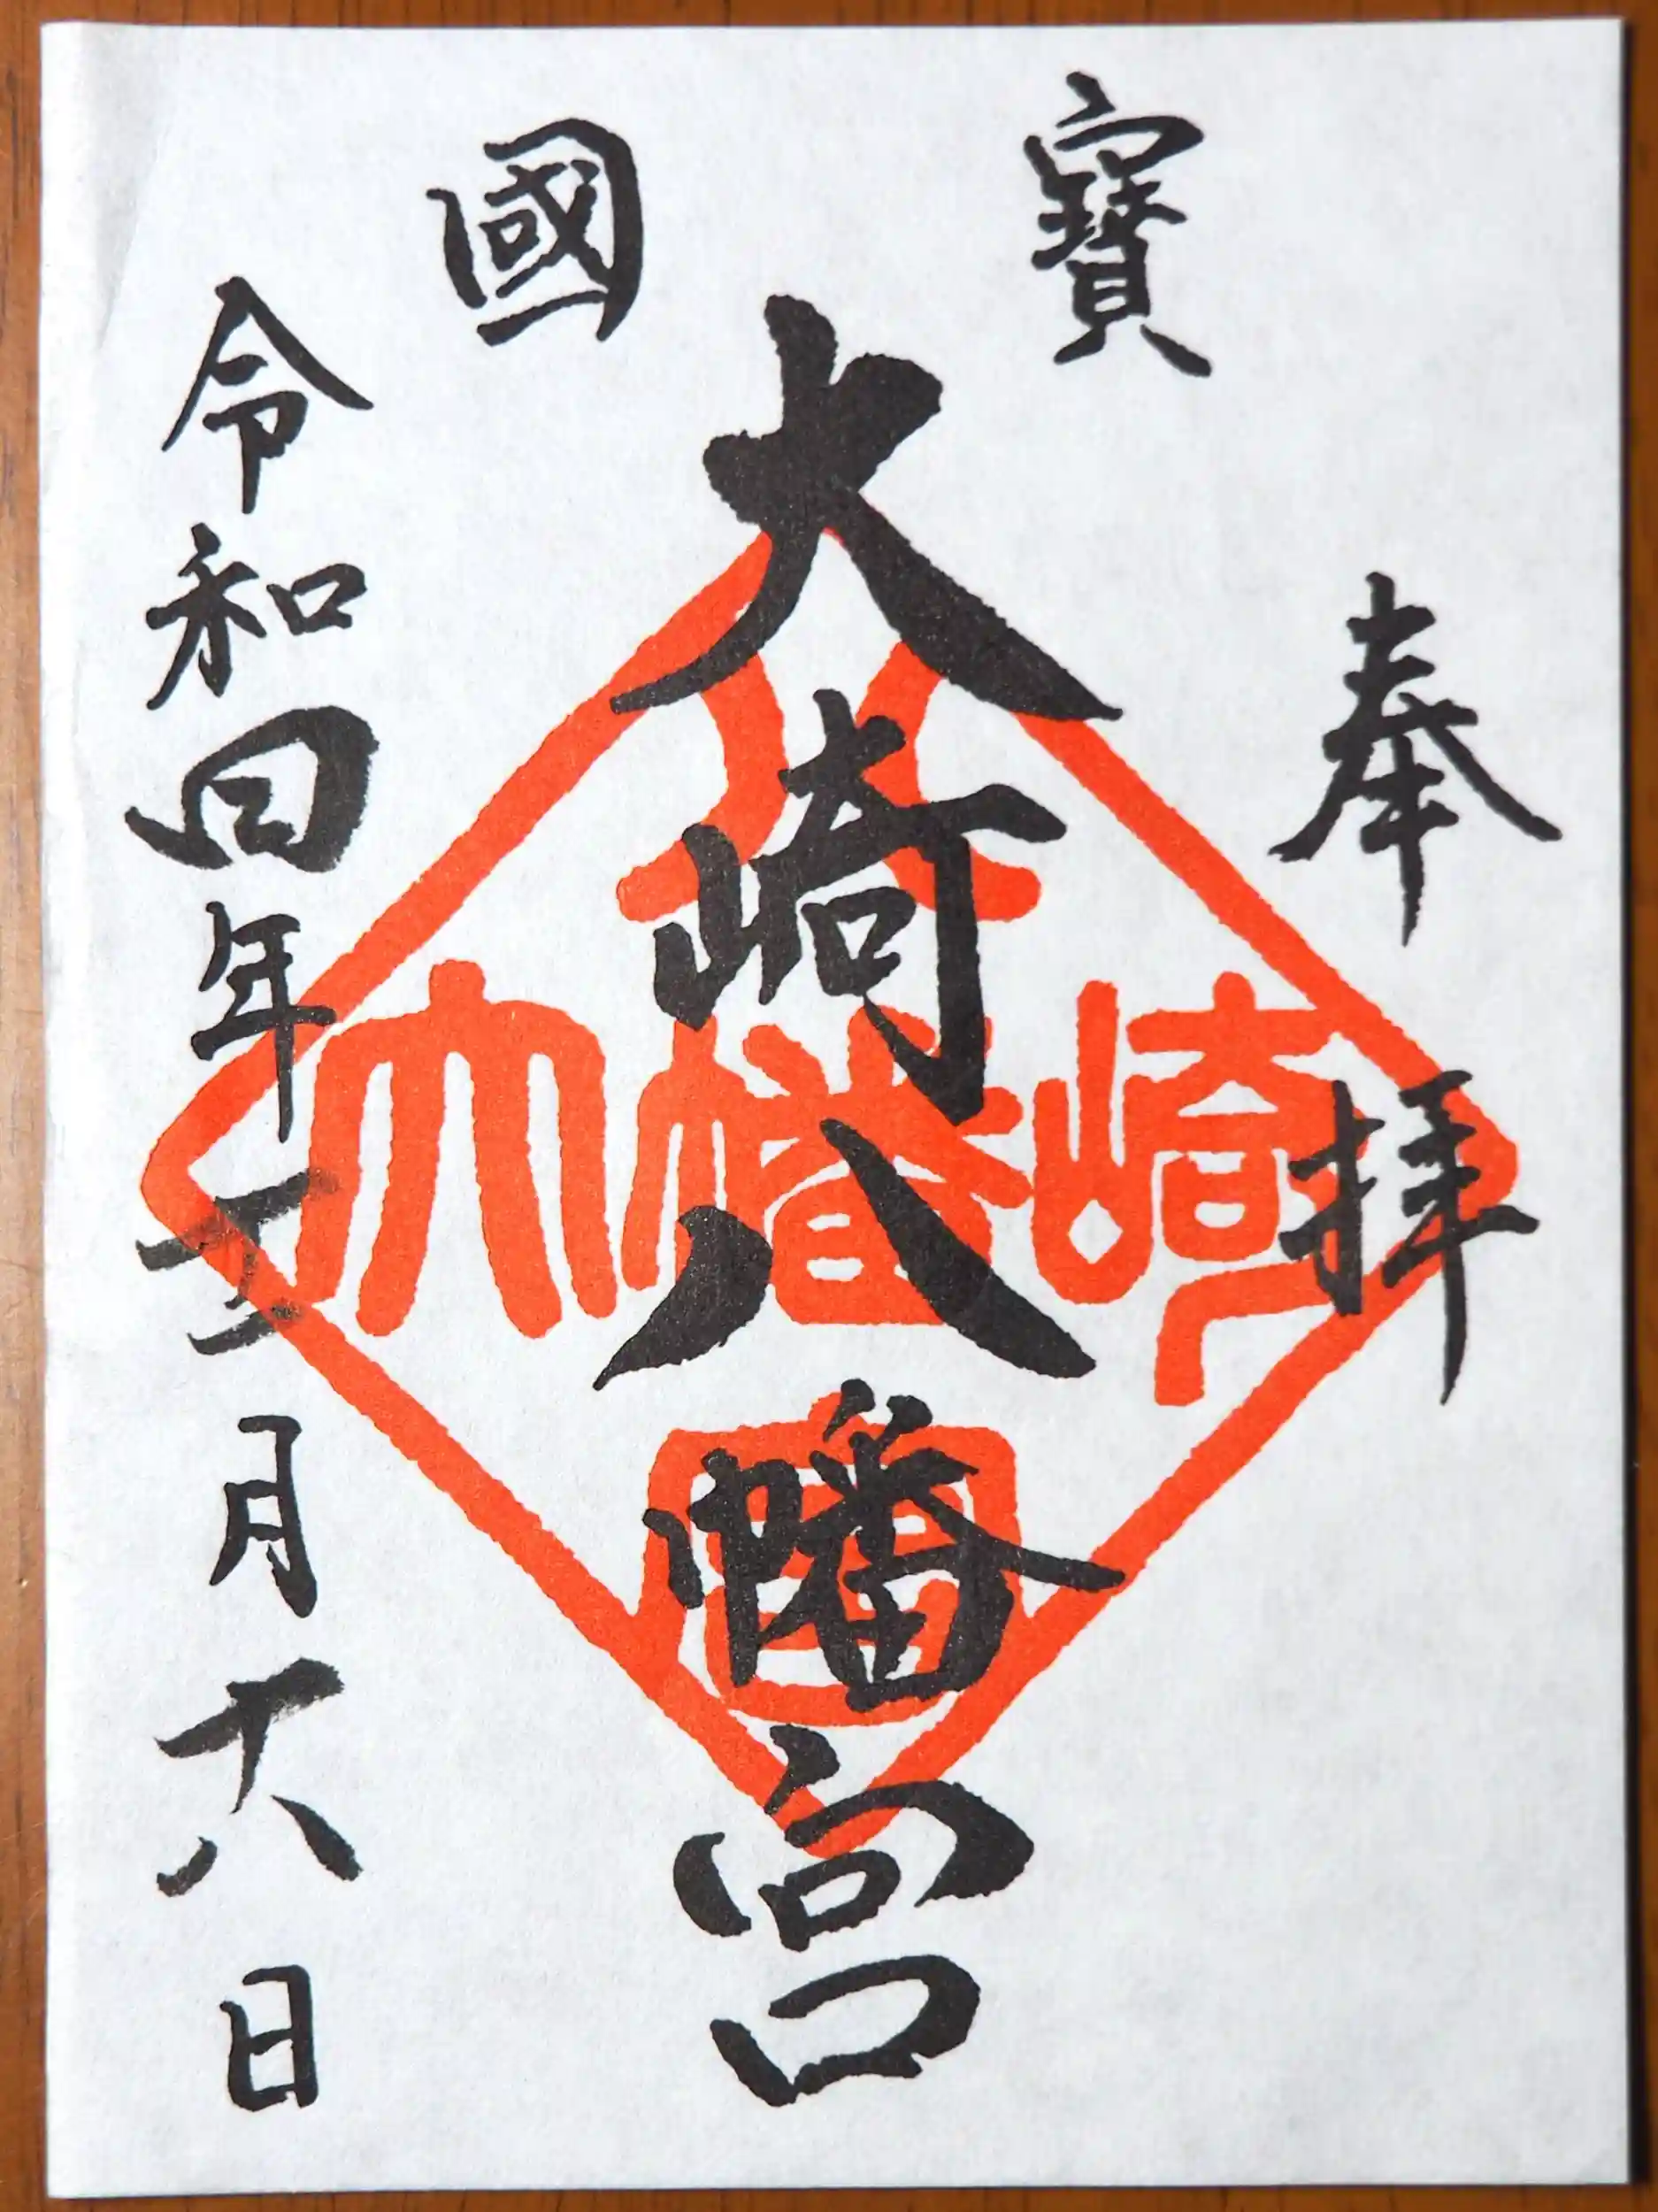 奉拝
國寶
大崎八幡宮
令和四年三月十八日
大崎八幡宮